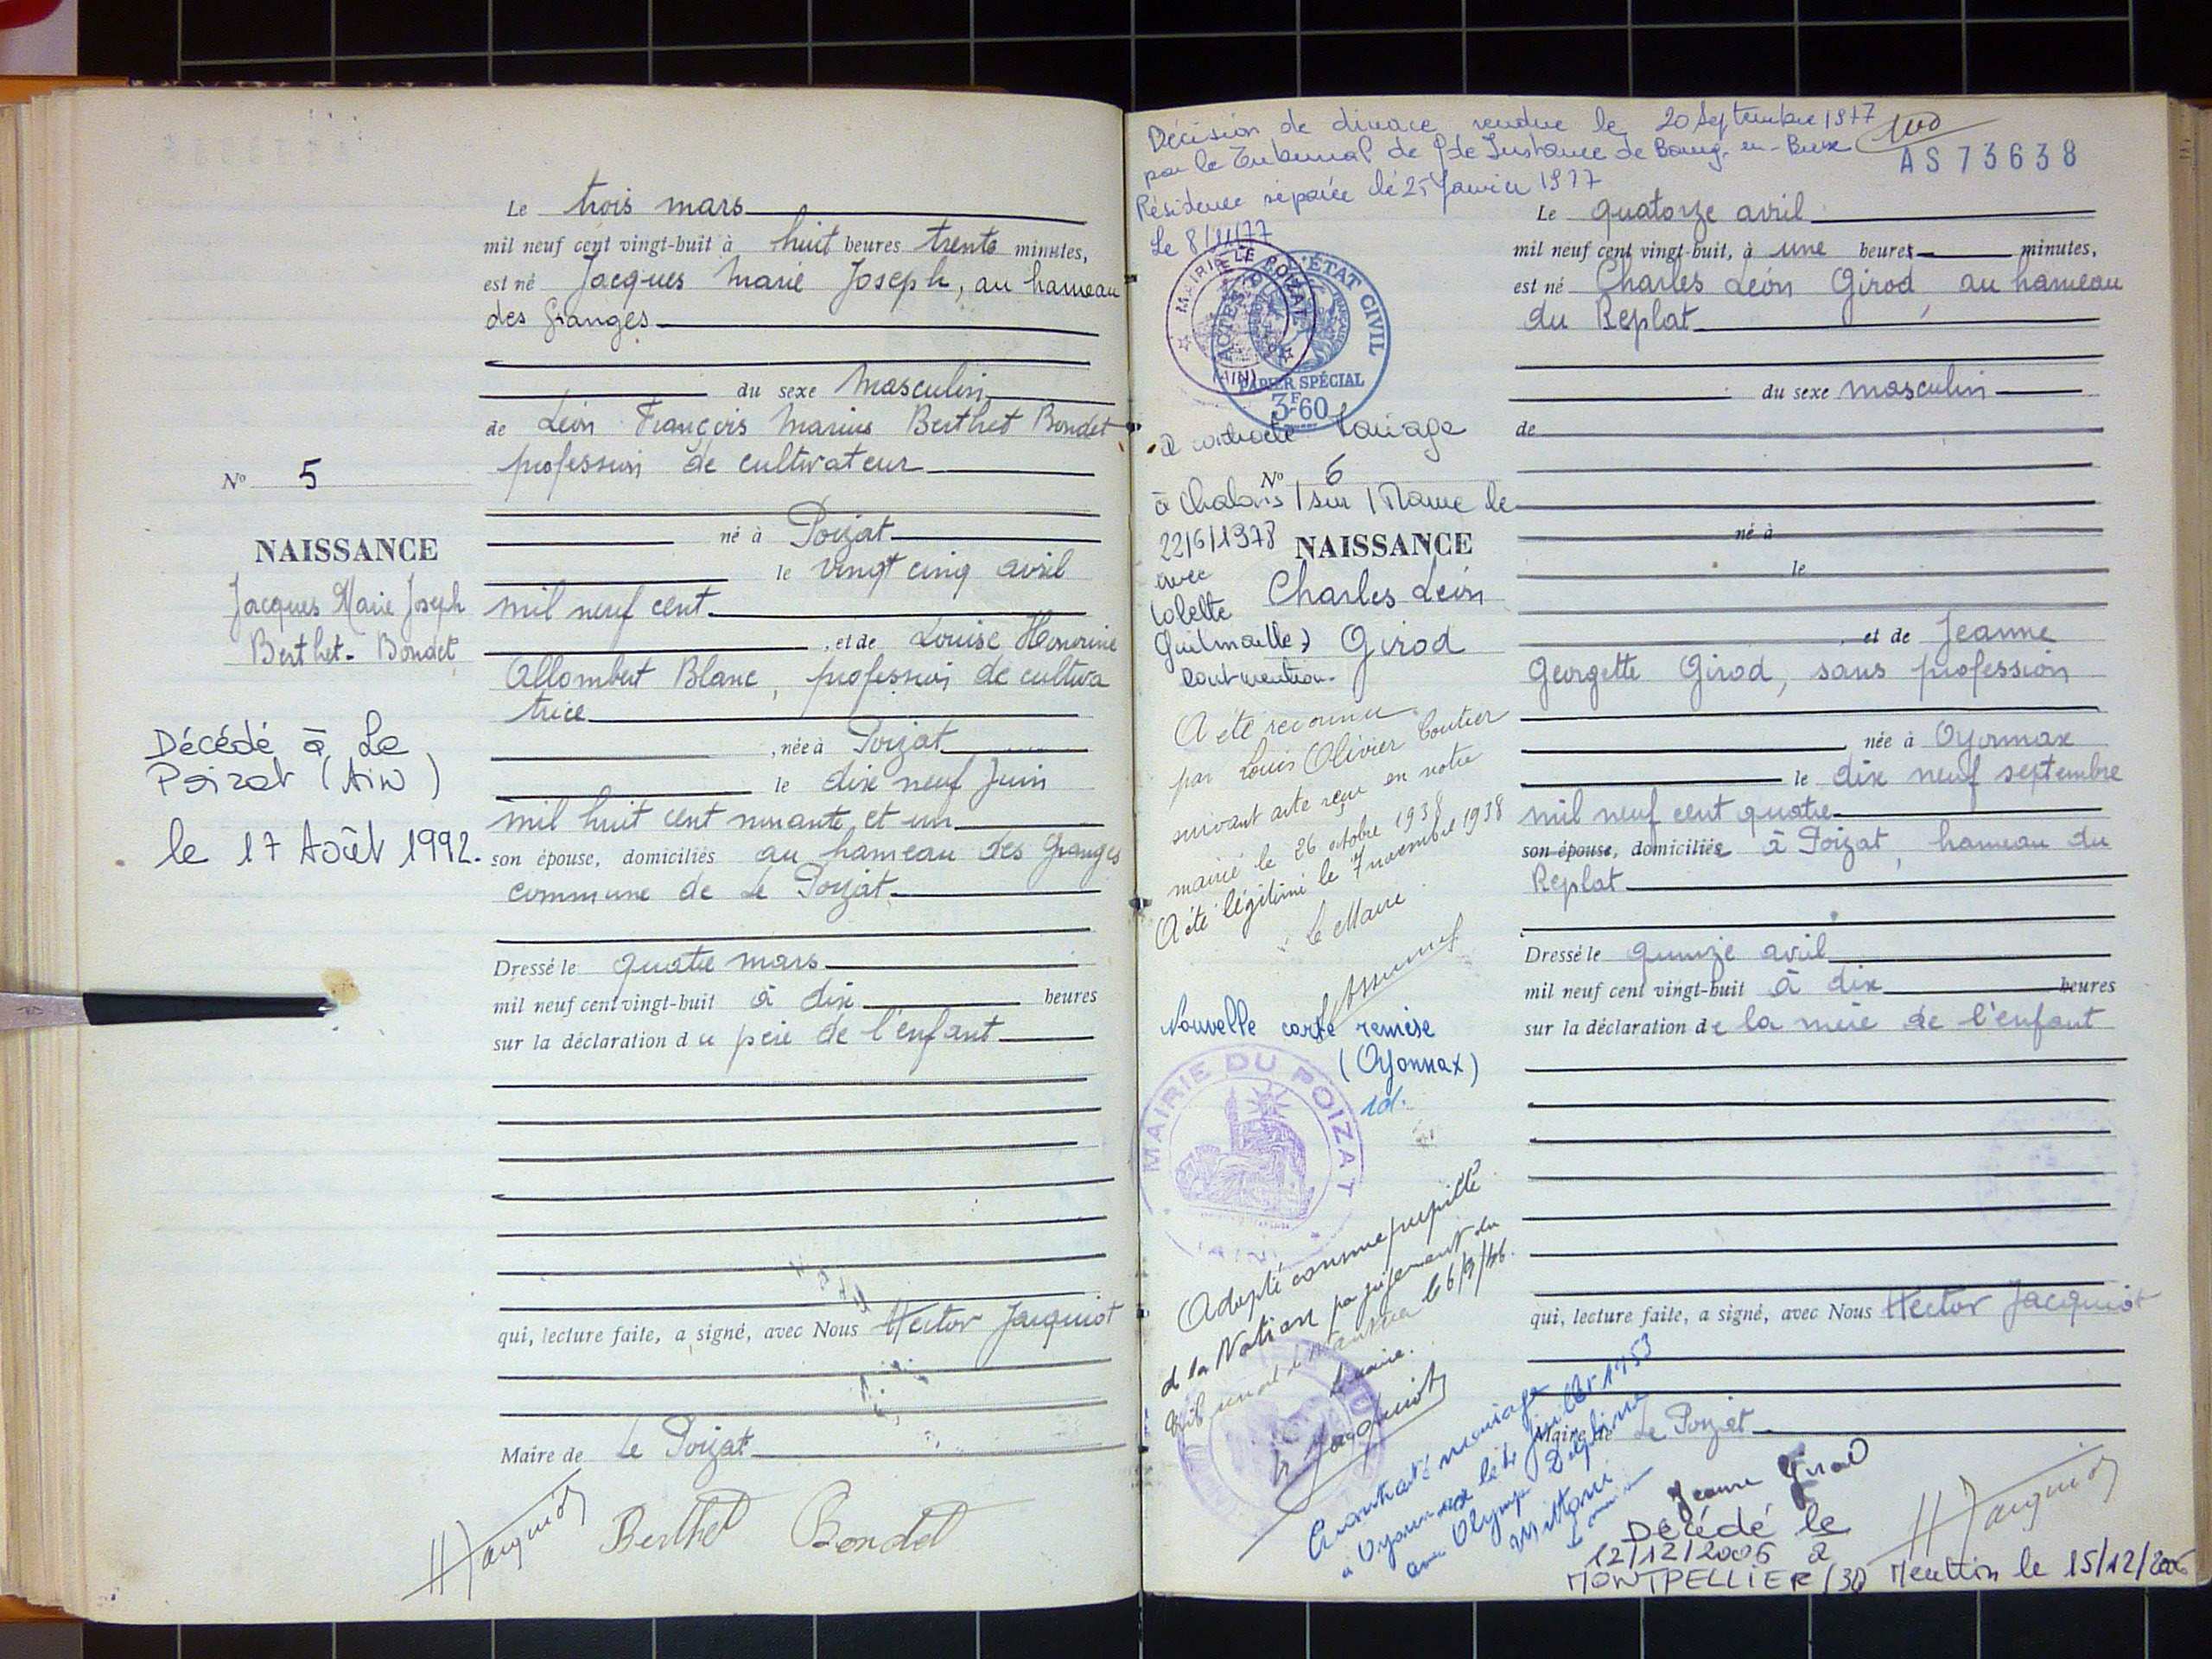 Le trois mars
mil neuf cent vingt-huit à huit heures trente minutes,
est né Jacques Marie Joseph, au hameau
des Granges
du sexe Masculin
de Léon François Marius Berthet Bondet
profession de cultivateur
N° 5
né à Poizat
NAISSANCE
le vingt cinq avril
Jacques Marie Joseph
mil neuf cent
Berthet-Bondet
, et de Louise Honorine
Allombert Blanc, profession de cultiva
trice
Décédé à Le
Poizat (Ain)
le 17 Août 1992.
, née à Poizat
le dix neuf Juin
mil huit cent nonante et un
son épouse, domiciliés au hameau des Granges
commune de Le Poizat
Dressé le quatre mars
mil neuf cent vingt-huit à dix heures
sur la déclaration du père de l'enfant
qui, lecture faite, a signé, avec Nous Hector Jacquiot
Maire de Le Poizat
H Jacquiot
Berthet Bondet
Décision de divorce rendue le 20 Septembre 1977
par le Tribunal de Gde Instance de Bourg-en-Bresse
Résidence séparée le 25 Janvier 1977
Le 8/11/77
AS 73638
MAIRIE LE POIZAT
(AIN)
ACTES DE L'ÉTAT CIVIL
PAPIER SPÉCIAL
3F60
a contracté mariage
N° 6
à Chalons / sur / Marne le
22/6/1978
avec
Colette
dont mention.
NAISSANCE
Charles Léon
Girod
A été reconnu
par Louis Olivier Coutier
suivant acte reçu en notre
mairie le 26 octobre 1938
A été légitimé le 7 novembre 1938
Le Maire
Nouvelle carte remise
(Oyonnax)
MAIRIE DU POIZAT
(AIN)
Adopté comme pupille
d la Nation par jugement du
tribunal de Nantua le 6/9/46.
Le maire.
H Jacquiot
Contracté mariage
à Oyonnax le juillet 1953
avec Olympe Delphine
Vittori
Le quatorze avril
mil neuf cent vingt-huit, à une heures minutes,
est né Charles Léon Girod, au hameau
du Replat
du sexe masculin
de
né à
le
, et de Jeanne
Georgette Girod, sans profession
née à Oyonnax
le dix neuf septembre
mil neuf cent quatre
son épouse, domiciliée à Poizat, hameau du
Replat
Dressé le quinze avril
mil neuf cent vingt-huit à dix heures
sur la déclaration de la mère de l'enfant
qui, lecture faite, a signé, avec Nous Hector Jacquiot
Maire de Le Poizat
Jeanne Girod
H Jacquiot
Décédé le
12/12/2006 à
MONTPELLIER (34) Mention le 15/12/2006